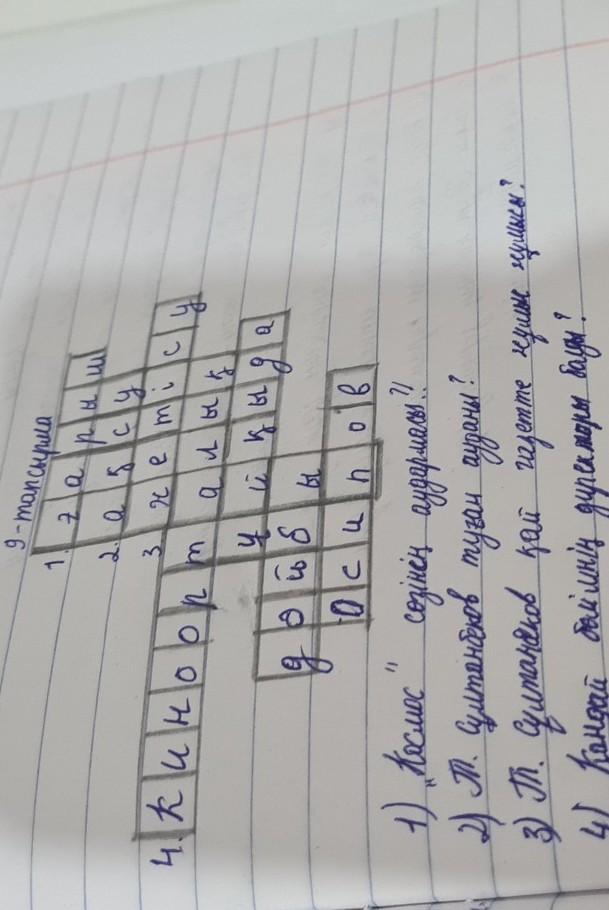 9-тапсырма
1. ғарыш
2. ақсу
3. жетісу
4. кинoорталық
уйқыда
дойбы
Осипов
1) „Космос" сөзінің аудармасы?
2) Т. Сұлтанбеков туған ауданы?
3) Т. Сұлтанбеков қай газетте жұмыс
4) Қандай бөлімнің директоры болды?